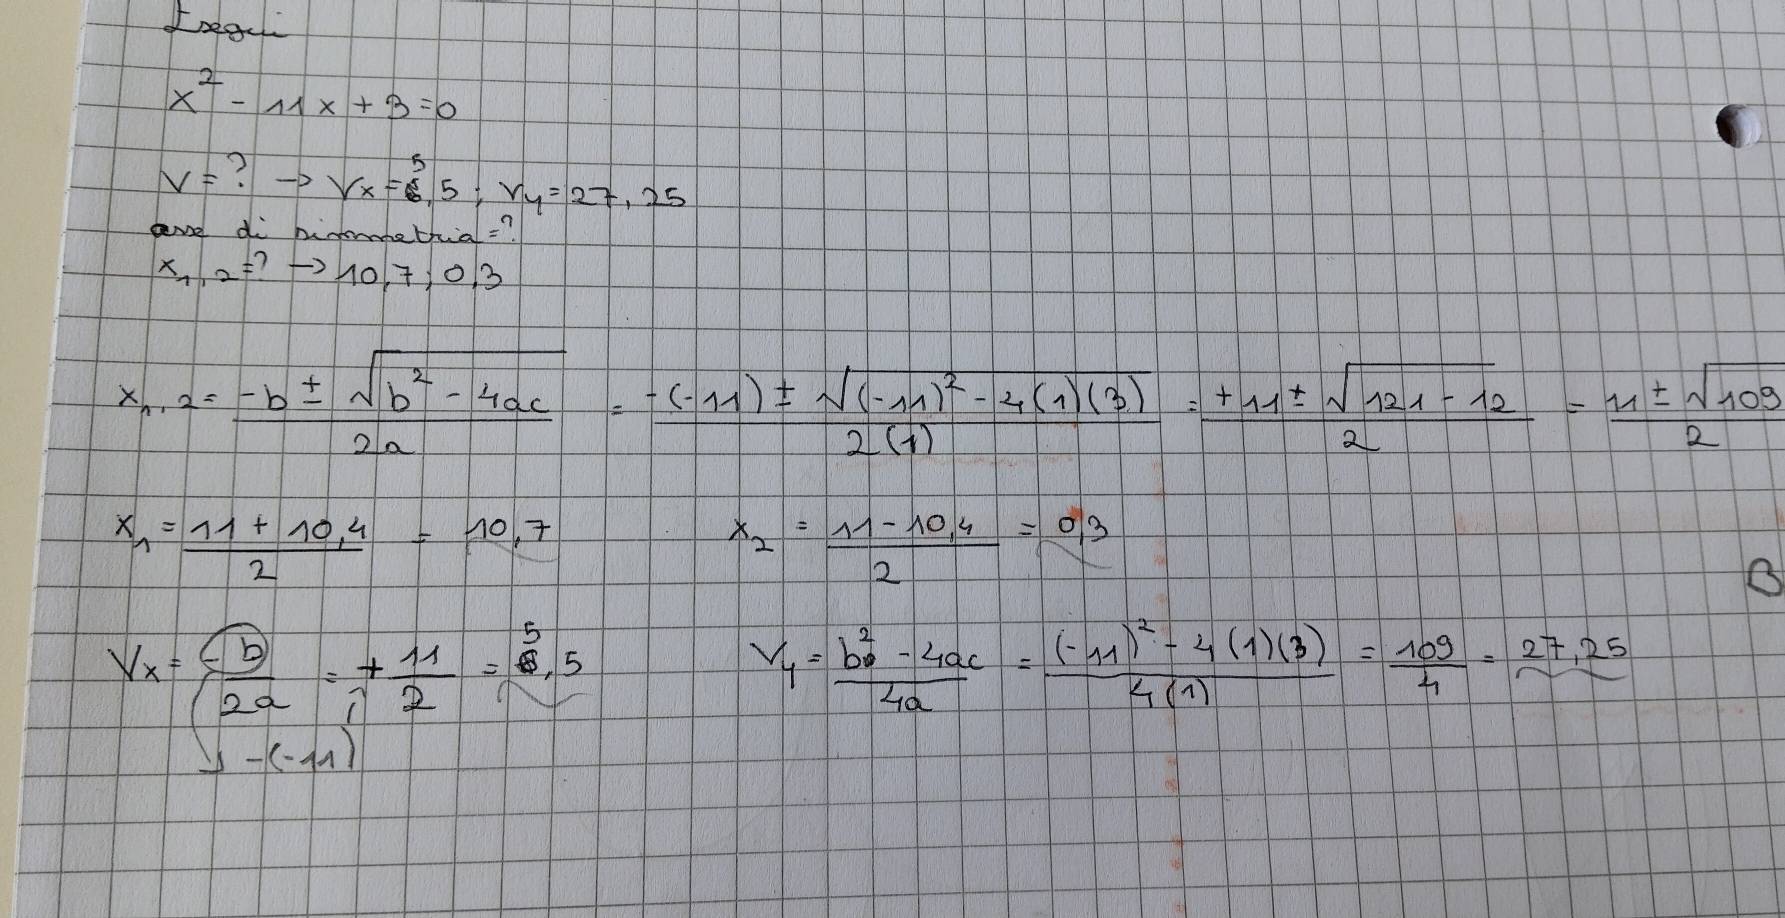 Esegui
x² - 11x + 3 = 0
V = ? → Vx = 5,5 ; Vy = 27,25
asse di simmetria = ?
x₁,₂ = ? → 10,7 ; 0,3
x₁,₂ = (-b ± √(b² - 4ac))/(2a) = (-(-11) ± √((-11)² - 4(1)(3)))/(2(1)) = (+11 ± √(121 - 12))/2 = (11 ± √109)/2
x₁ = (11 + 10,4)/2 = 10,7 x₂ = (11 - 10,4)/2 = 0,3
Vx = -b/(2a) = + 11/2 = 5,5 Vy = (b² - 4ac)/(4a) = ((-11)² - 4(1)(3))/(4(1)) = 109/4 = 27,25
-(-11)